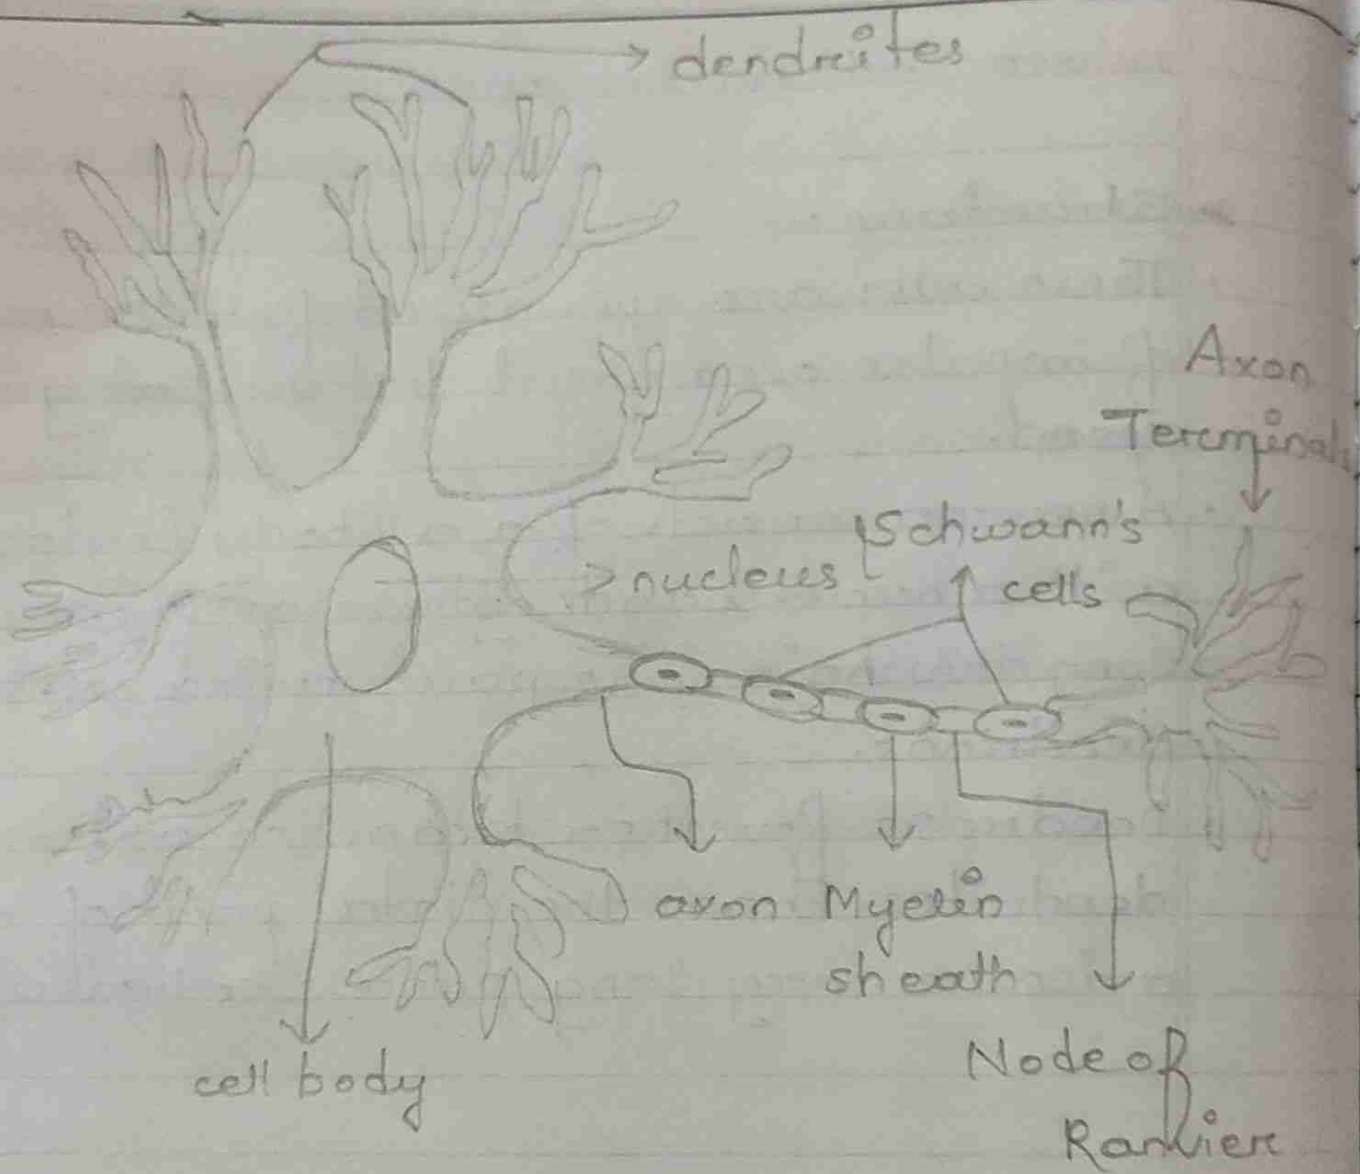 dendrites
Axon
Terminals
Schwann's
cells
nucleus
axon
Myelin
sheath
cell body
Node of
Ranvier